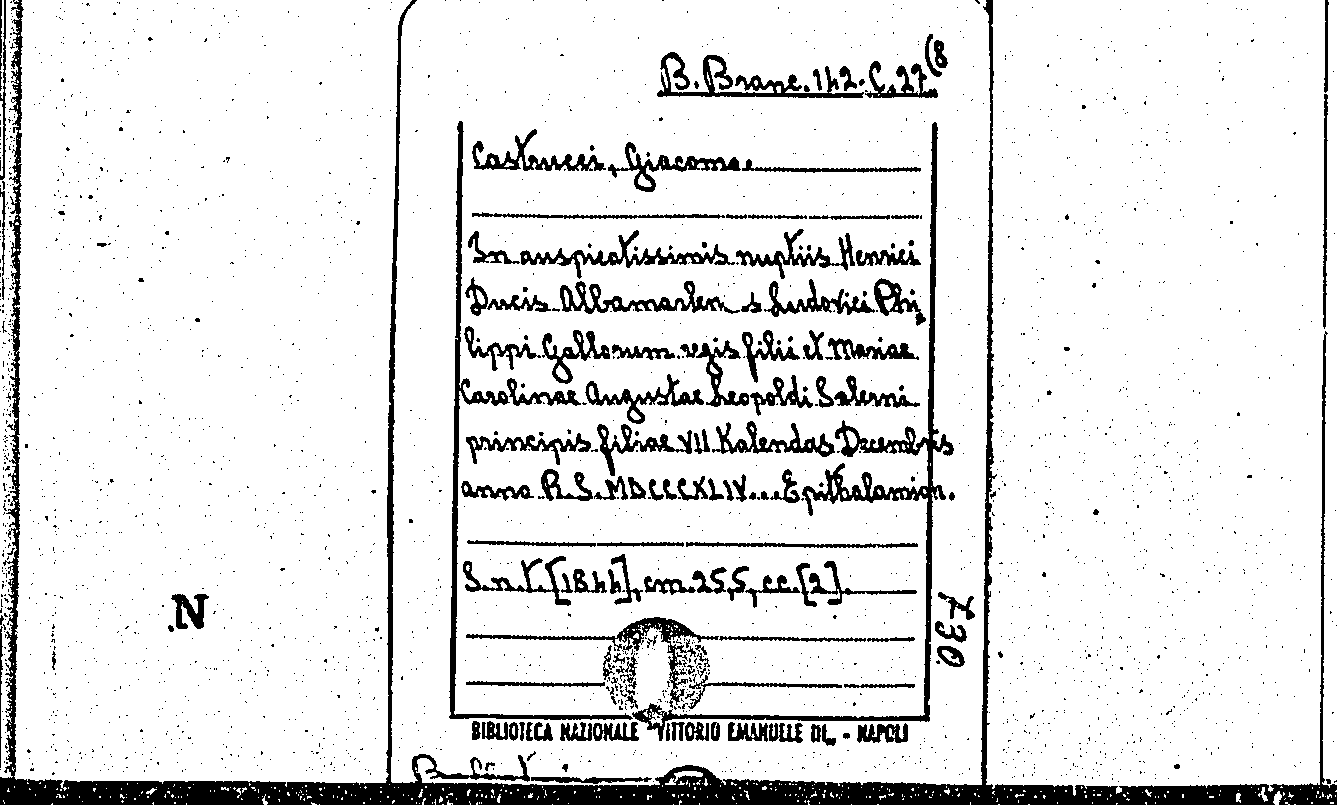 B. Branc. 142. C. 27 (8
Castrucci, Giacomo
In auspicatissimis nuptiis Henrici
Ducis Albamarlen. s Ludovici Phi,
lippi Gallorum regis filii et Mariae
Carolinae Augustae Leopoldi Salerni
principis filiae VII Kalendas Decembris
anno R. S. MDCCCXLIV... Epithalamion.
S.n.t. [1844], cm. 25,5, cc. [2].
730
N
BIBLIOTECA NAZIONALE "VITTORIO EMANUELE III" - NAPOLI